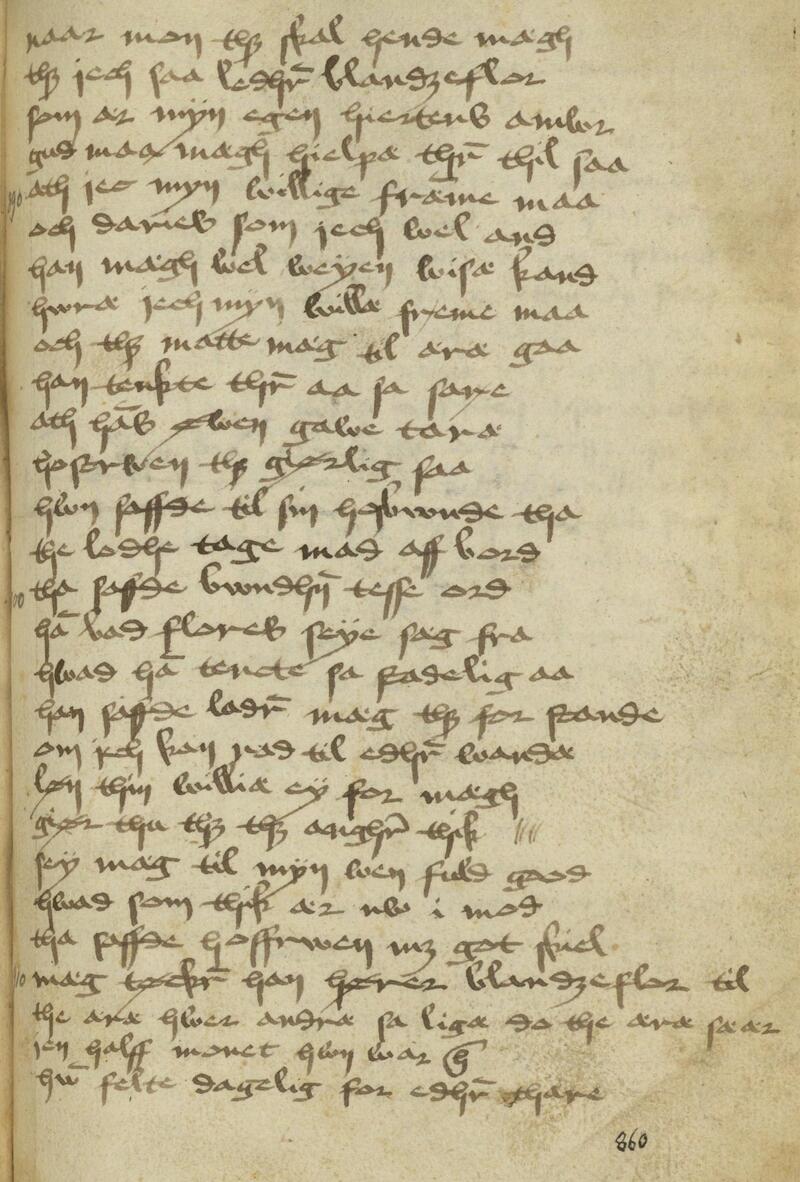 naar mon thz skal hende mægh
thz jech saa ledhr̄ blandzeflor
som ær myn egen hiertens ambor
gud maa mægh hielpæ thr̄ thil saa
ath jec myn willige fræme maa
och daries som jech wel and
han mægh wel weyen wisæ kand
hwræ jech myn willæ fræme maa
och thz matte mæg til æræ gaa
han tenkte thr̄ aa sa saræ
ath hās øwen gawe taræ
hosfrwen thz giørlig saa
hwn saffde til sin hosbwnde tha
the lodhe tage mad aff bord
tha saffde bwndhn̄ tesse ord
hā bad flores seye sæg fra
hwad hā tencte sa stadelig aa
han saffde ladr̄ mæg thz for stande
om jech kan rad til edhr̄ wandæ
løn thin williæ ey for mægh
giør thu thz thz anghr̄ thik
sey mæg til myn wen fuld good
hwad som thik ær nw i mod
tha saffde hoffrwen mz got skiel
mæg tøckr̄ han hører blandzeflor til
the æræ hwer andræ sa ligæ do the æræ sæær
jen halff monet hwn war
hw̄ felte dagelig for edhr̄ thare
860